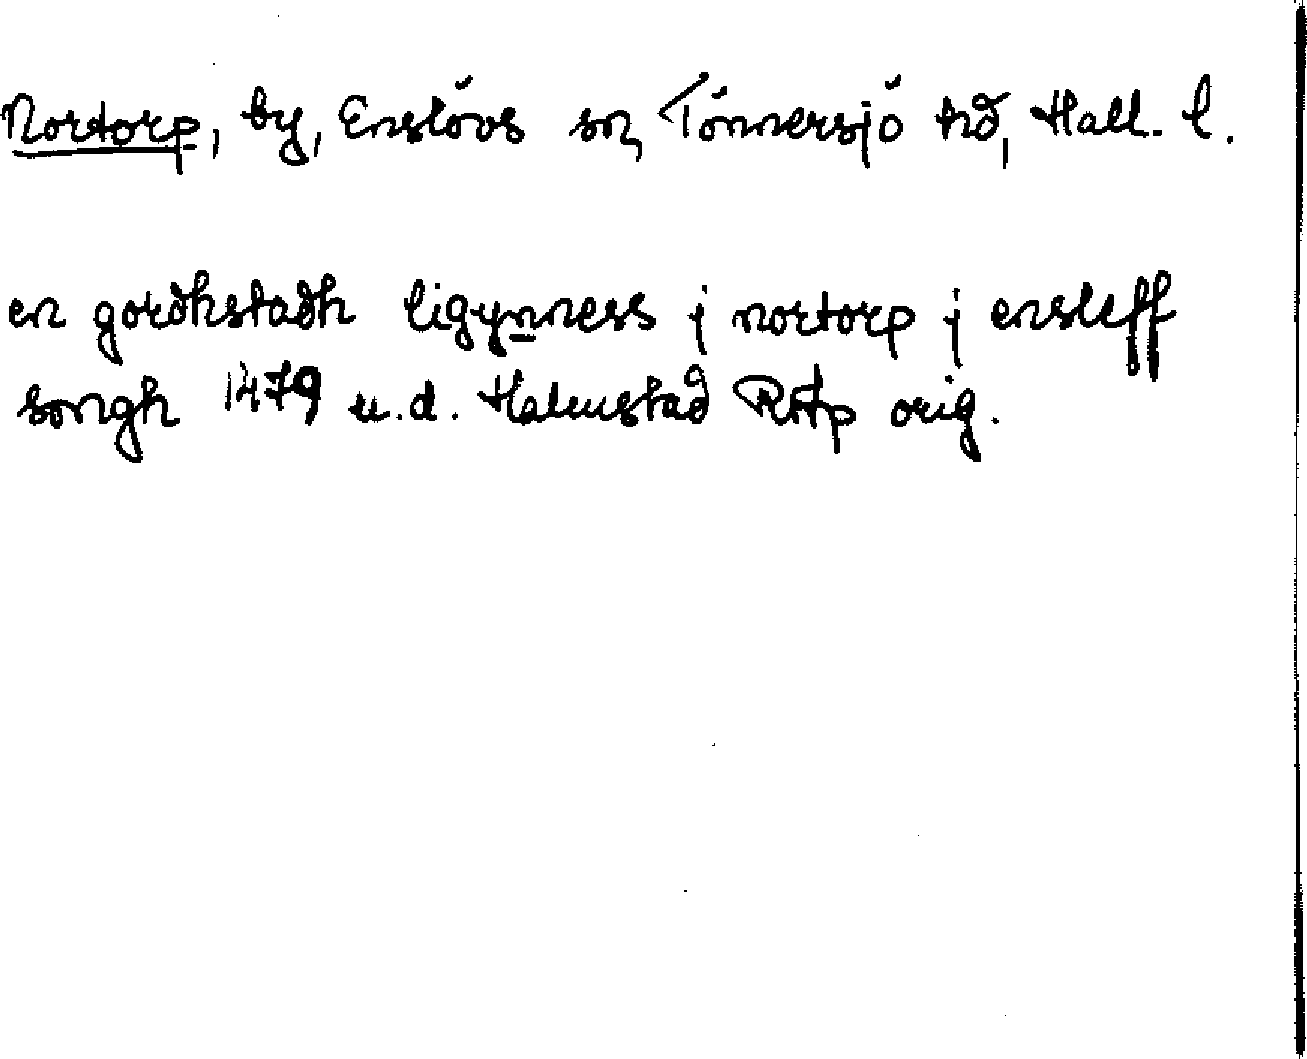 Nortorp, by, Enslövs sn, Tönnersjö hd, Hall. l.
en gordhstadh ligynness j nortorp j ensleff
songh 1479 u.d. Halmstad RAp orig.